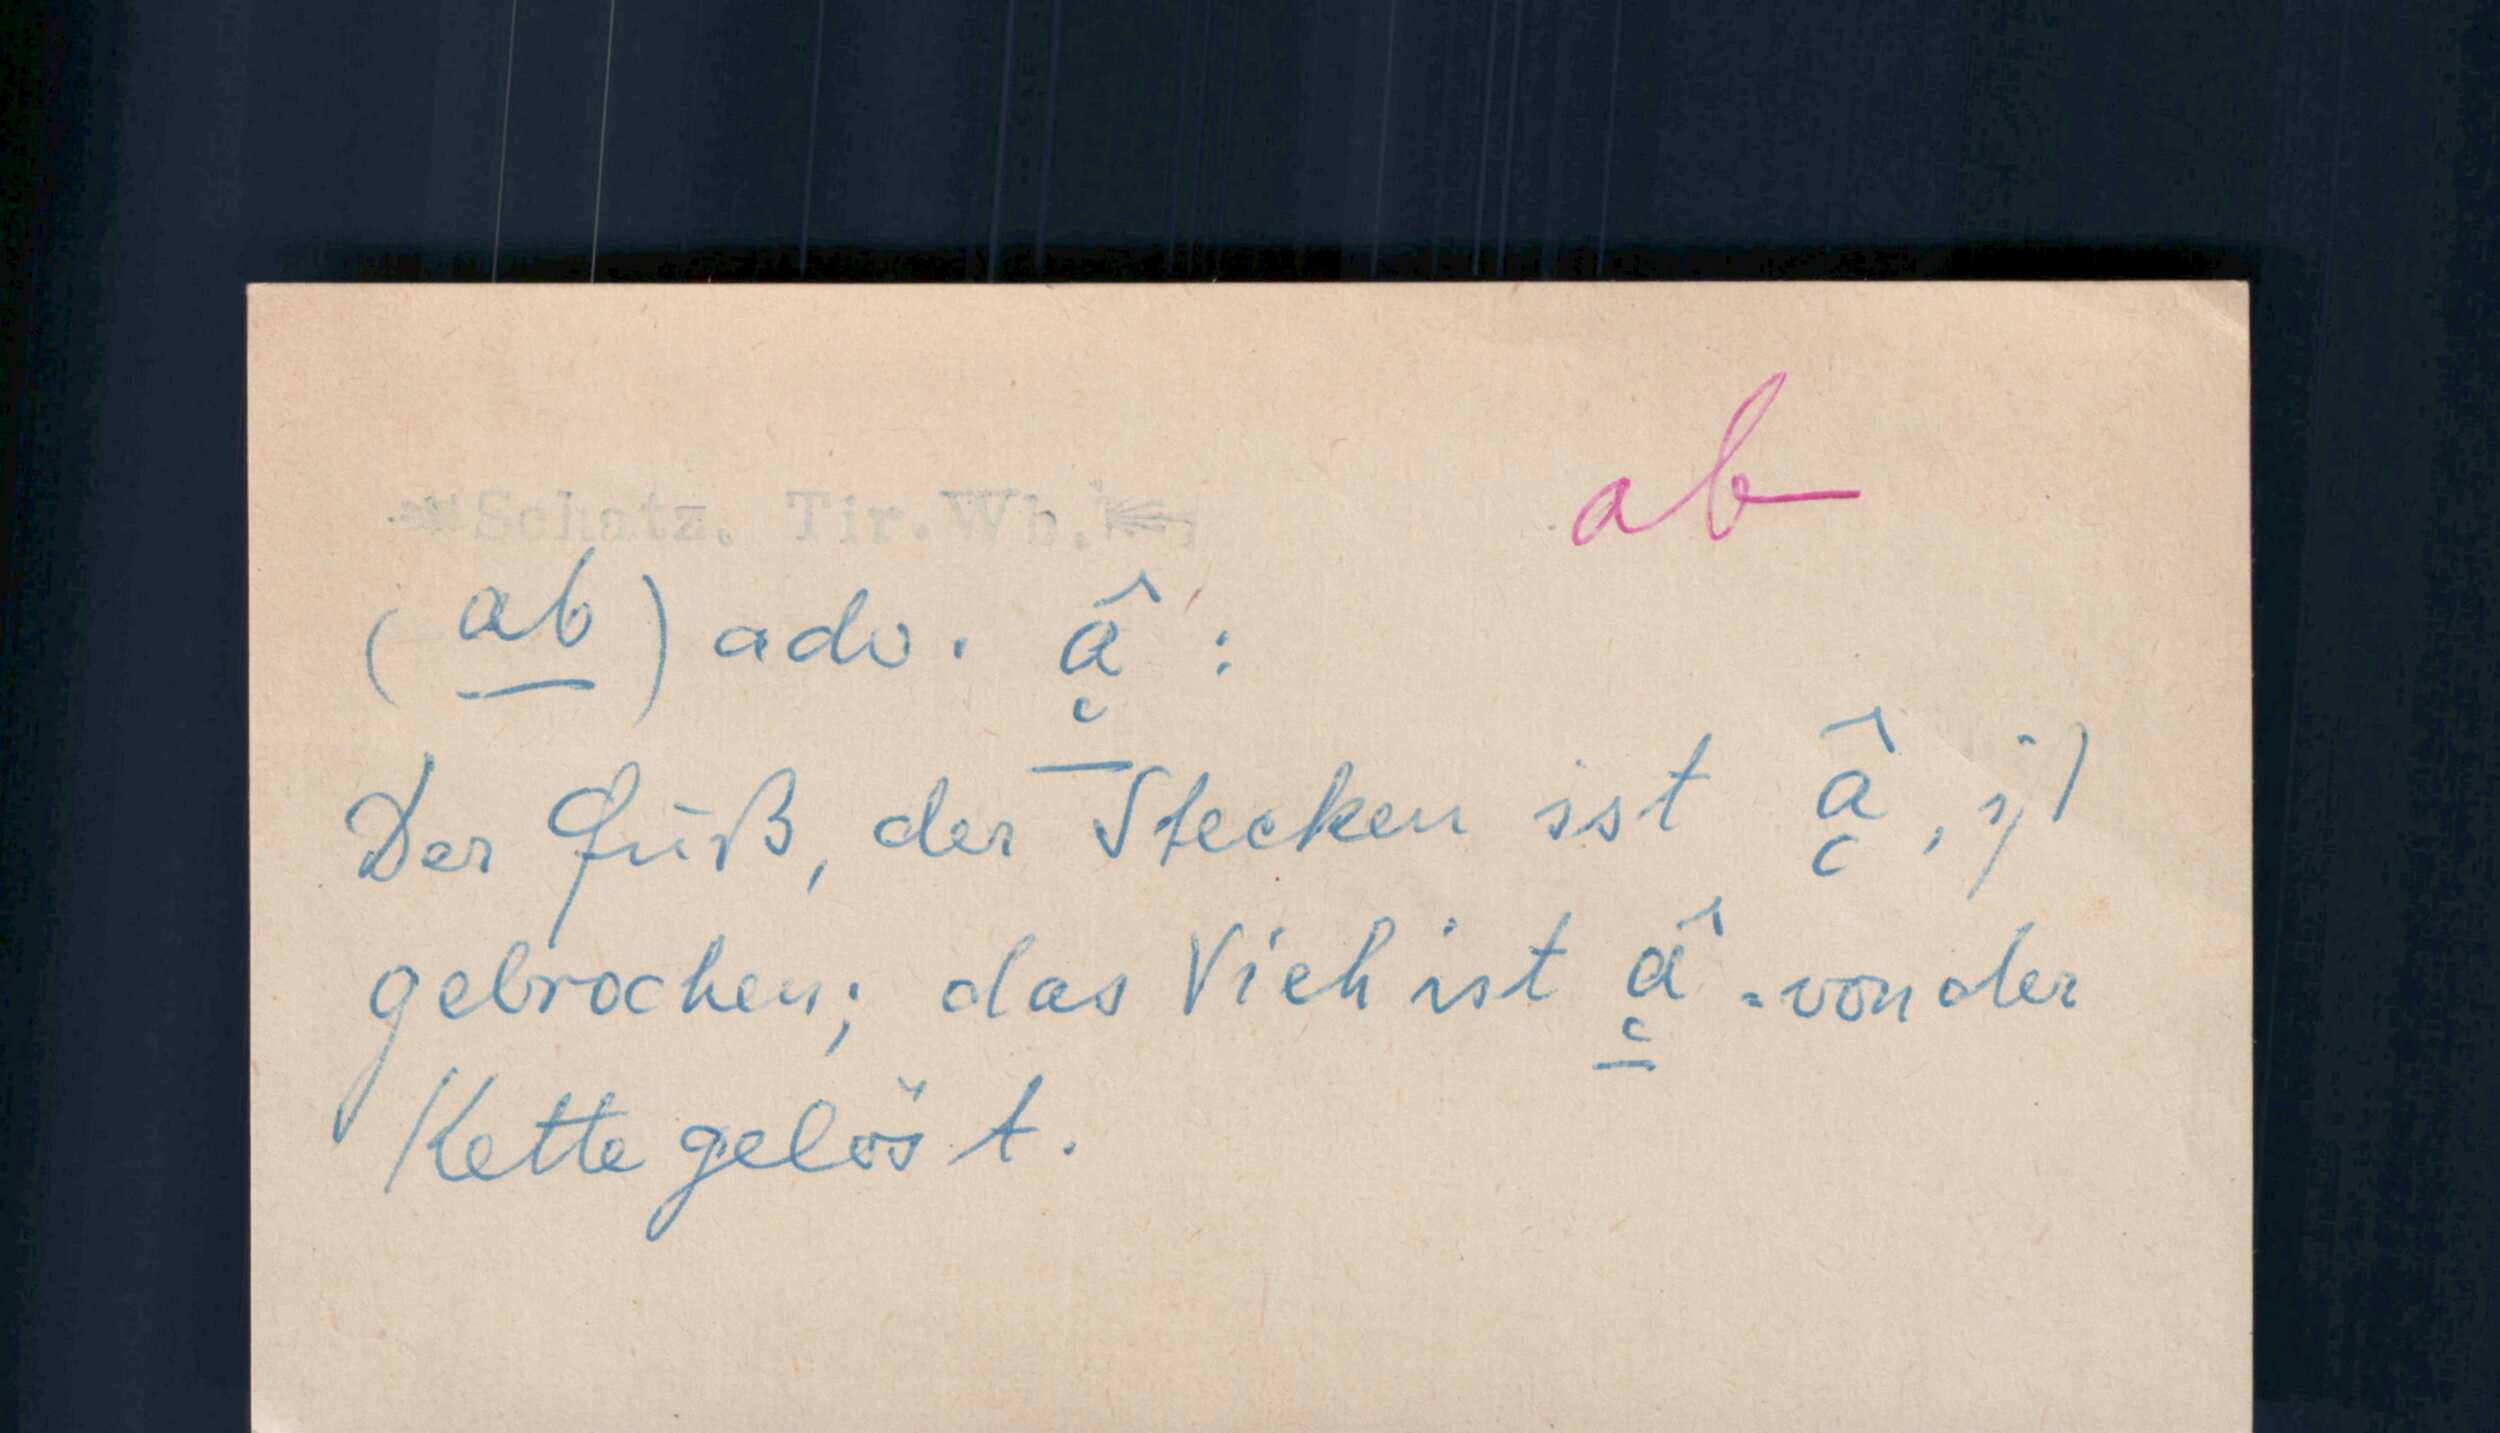 ab
Schatz. Tir.Wb.
(ab) adv. â̜ :
Der Fuß, der Stecken ist â̜,
gebrochen; das Vieh ist â̜ = von der
Kette gelöst.